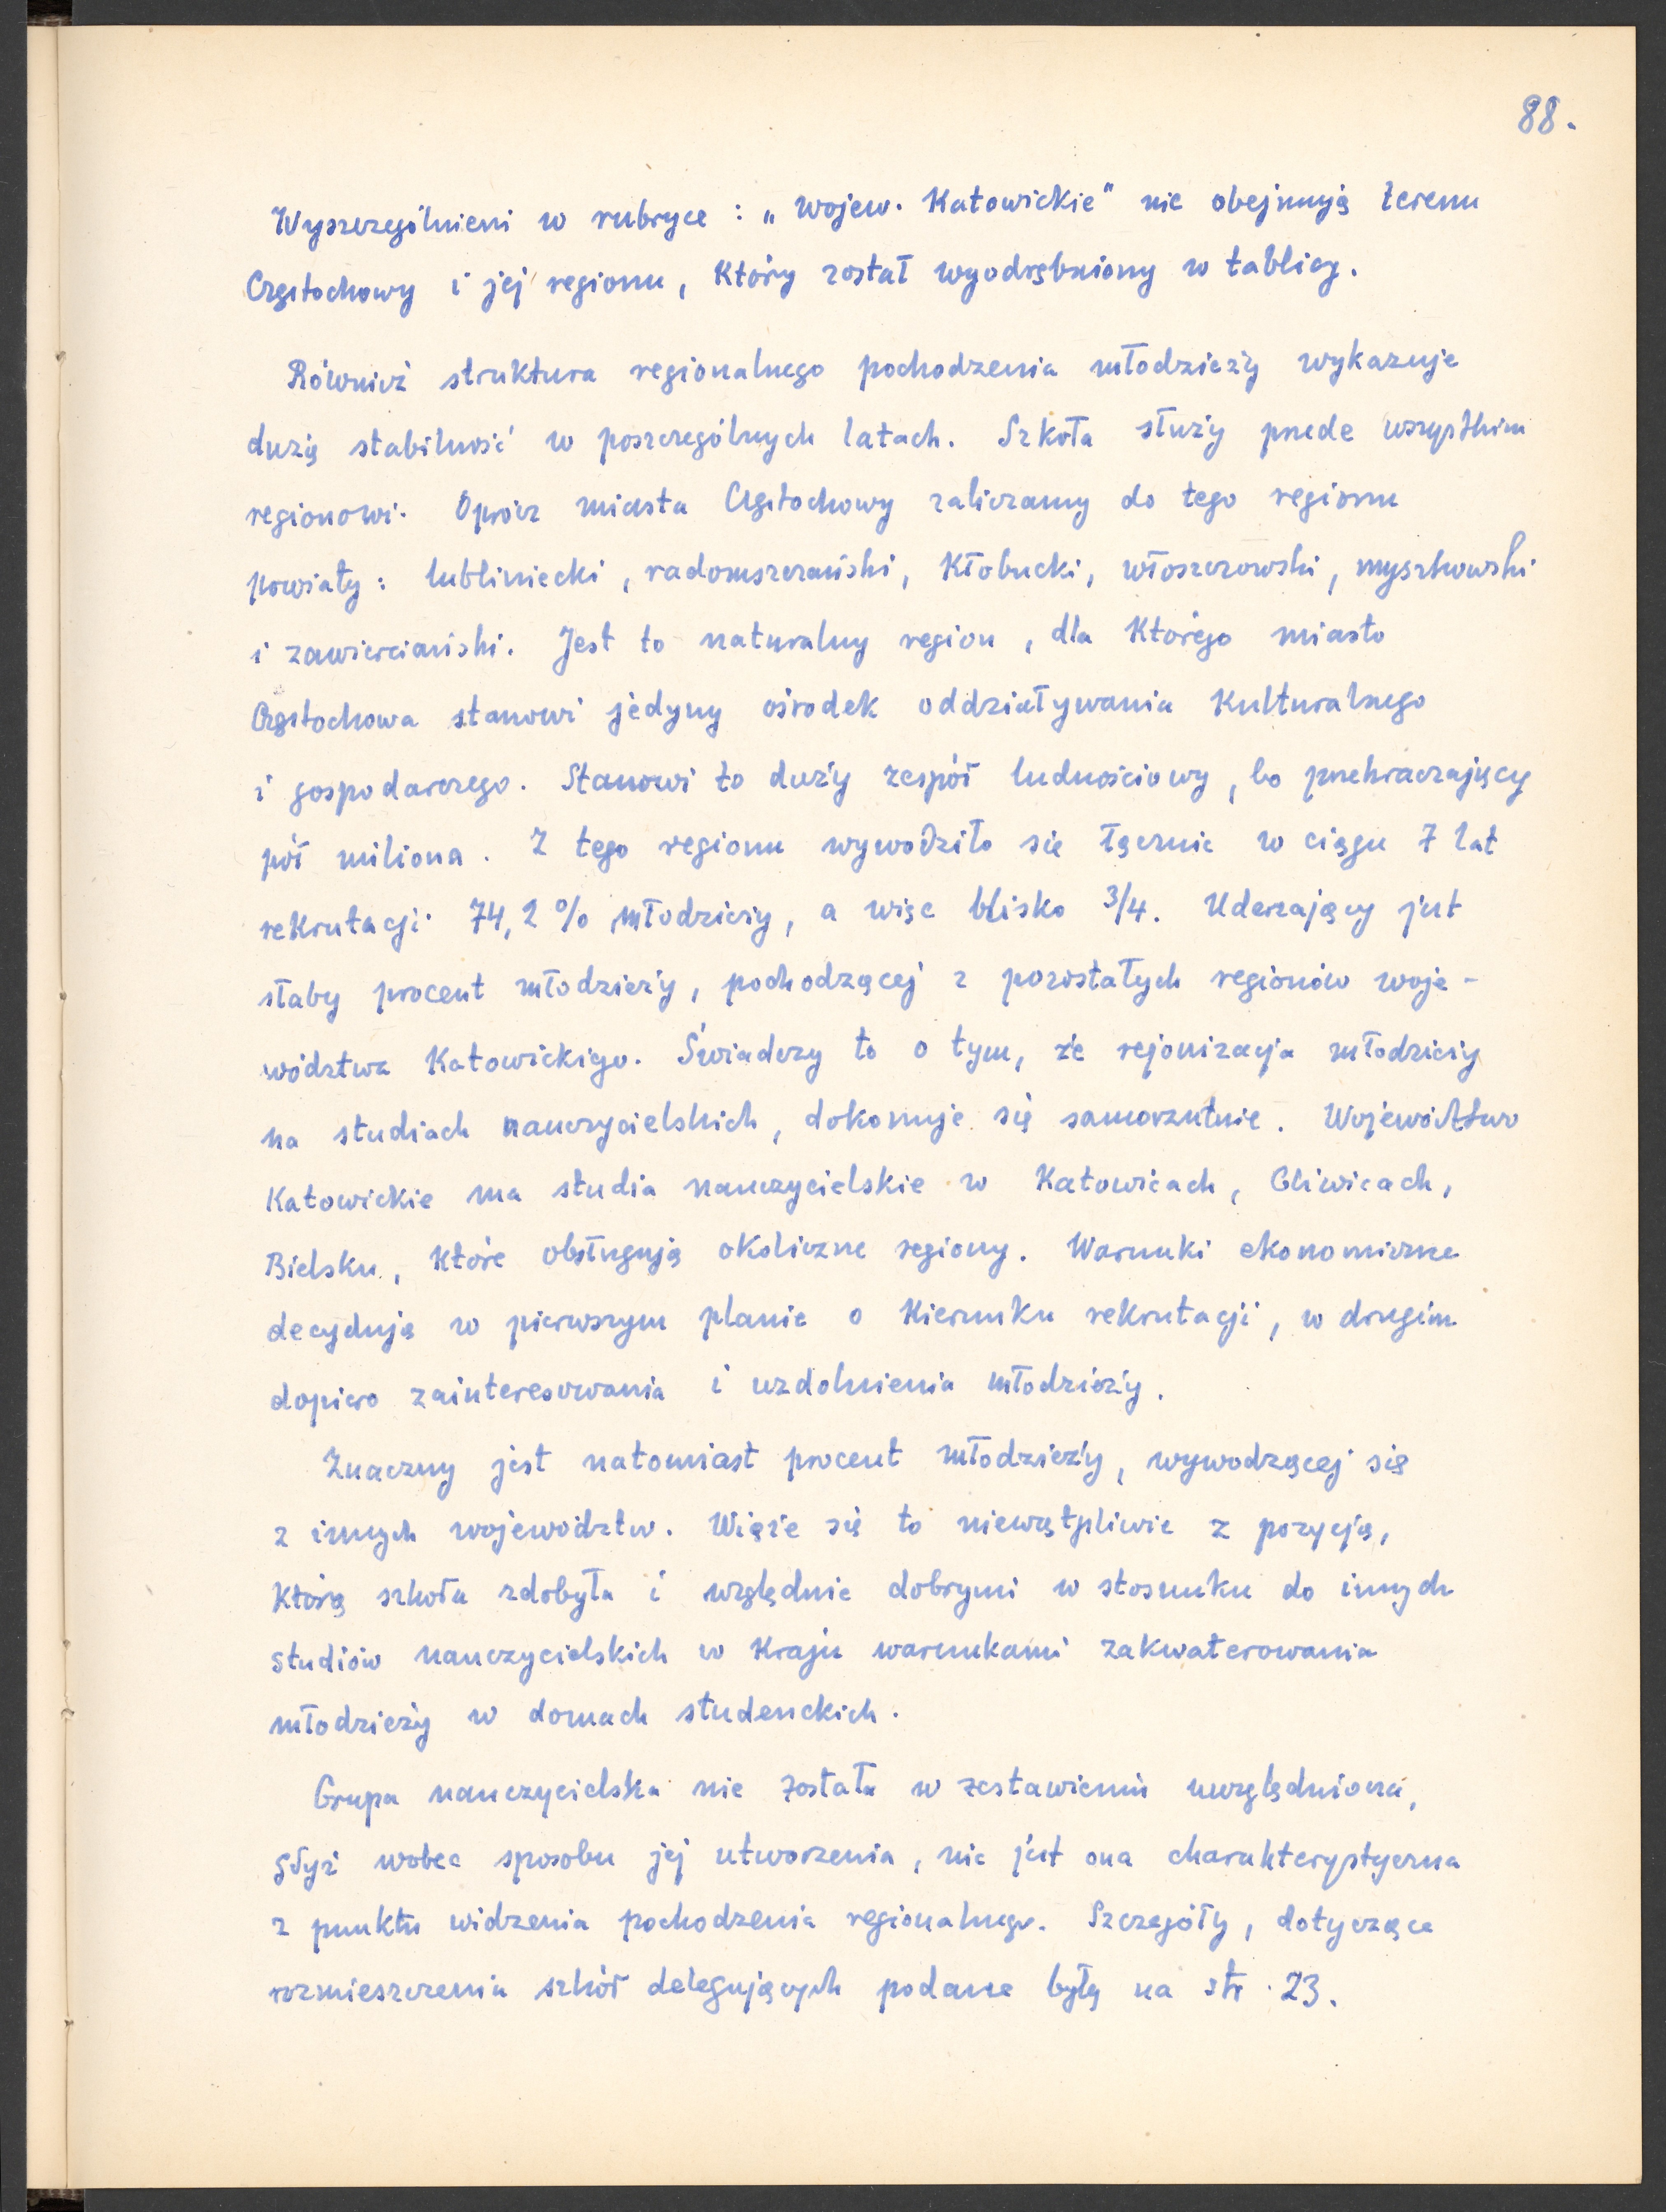 88.
Wyszczególnieni w rubryce : „Wojew. Katowickie" nie obejmują terenu
Częstochowy i jej regionu, który został wyodrębniony w tablicy.
Również struktura regionalnego pochodzenia młodzieży wykazuje
dużą stabilność w poszczególnych latach. Szkoła służy przede wszystkim
regionowi. Oprócz miasta Częstochowy zaliczamy do tego regionu
powiaty: lubliniecki, radomszczański, kłobucki, włoszczowski, myszkowski
i zawierciański. Jest to naturalny region, dla którego miasto
Częstochowa stanowi jedyny ośrodek oddziaływania kulturalnego
i gospodarczego. Stanowi to duży zespół ludnościowy, bo przekraczający
pół miliona. Z tego regionu wywodziło się łącznie w ciągu 7 lat
rekrutacji 74,2 % młodzieży, a więc blisko 3/4. Uderzający jest
słaby procent młodzieży, pochodzącej z pozostałych regionów woje-
wództwa Katowickiego. Świadczy to o tym, że rejonizacja młodzieży
na studiach nauczycielskich, dokonuje się samorzutnie. Województwo
Katowickie ma studia nauczycielskie w Katowicach, Gliwicach,
Bielsku, które obsługują okoliczne regiony. Warunki ekonomiczne
decydują w pierwszym planie o kierunku rekrutacji, w drugim
dopiero zainteresowania i uzdolnienia młodzieży.
Znaczny jest natomiast procent młodzieży, wywodzącej się
z innych województw. Wiąże się to niewątpliwie z pozycją,
którą szkoła zdobyła i względnie dobrymi w stosunku do innych
studiów nauczycielskich w kraju warunkami zakwaterowania
młodzieży w domach studenckich.
Grupa nauczycielska nie została w zestawieniu uwzględniona,
gdyż wobec sposobu jej utworzenia, nie jest ona charakterystyczna
z punktu widzenia pochodzenia regionalnego. Szczegóły, dotyczące
rozmieszczenia szkół delegujących podane były na str. 23.